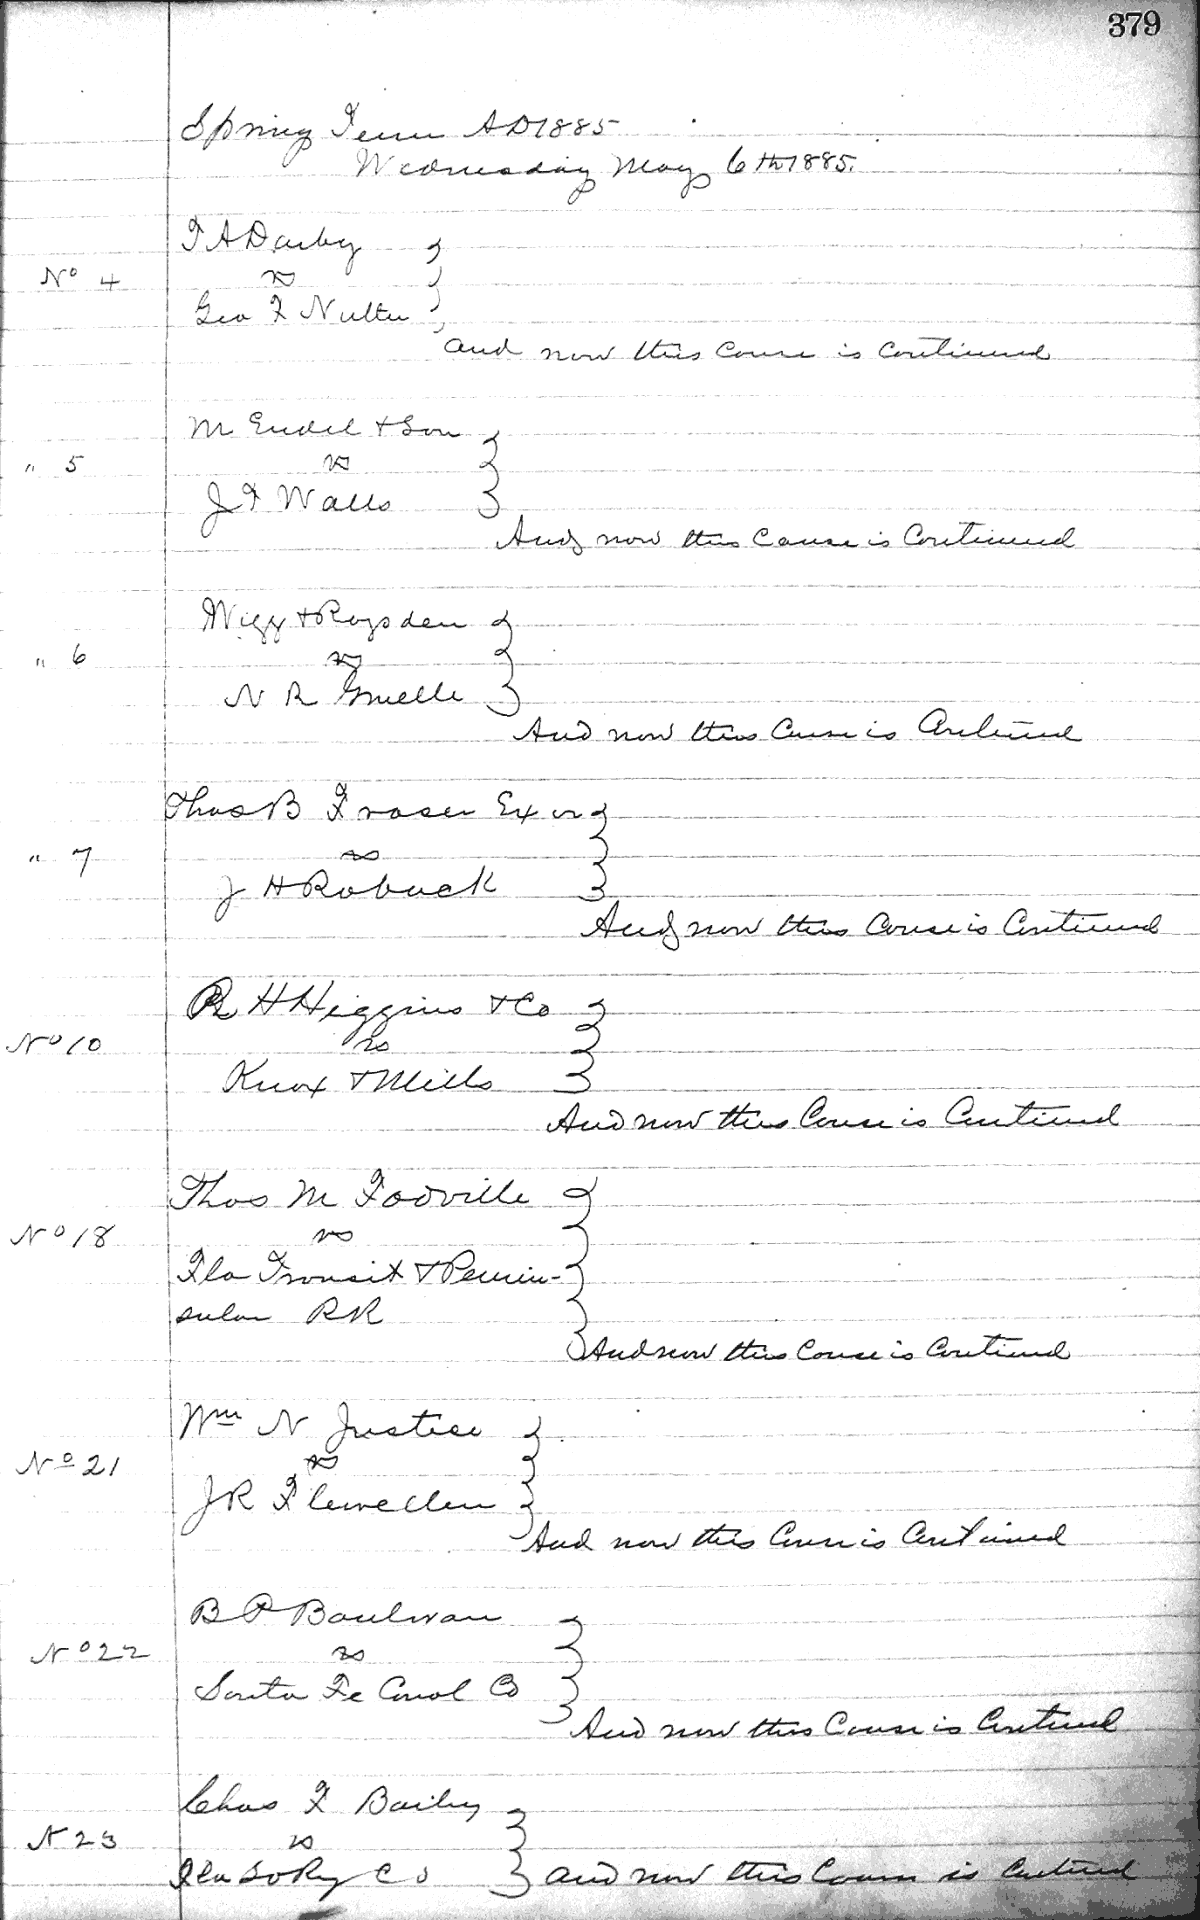 379
Spring Term AD 1885
Wednesday May 6th 1885.
T A Darby
No 4 vs
Geo F Nutter
and now this Cause is Continued
M Endel & Son
" 5 vs
J T Walls
And now this Cause is Continued
Wigg & Roysden
" 6 vs
N R Gruelle
And now this Cause is Continued
Thos B Fraser Exor
" 7 vs
J H Robuck
And now this Cause is Continued
R H Higgins & Co
No 10 vs
Knox & Mills
And now this Cause is Continued
Thos M
No 18 vs
Fla Transit & Penin-
sular RR
And now this Cause is Continued
Wm N Justice
No 21 vs
J R Flewellen
And now this Cause is Continued
B P Boulwan
No 22 vs
Santa Fe Canal Co
And now this Cause is Continued
Chas F Bailey
N 23 vs
Fla So Ry Co and now this Cause is Continued